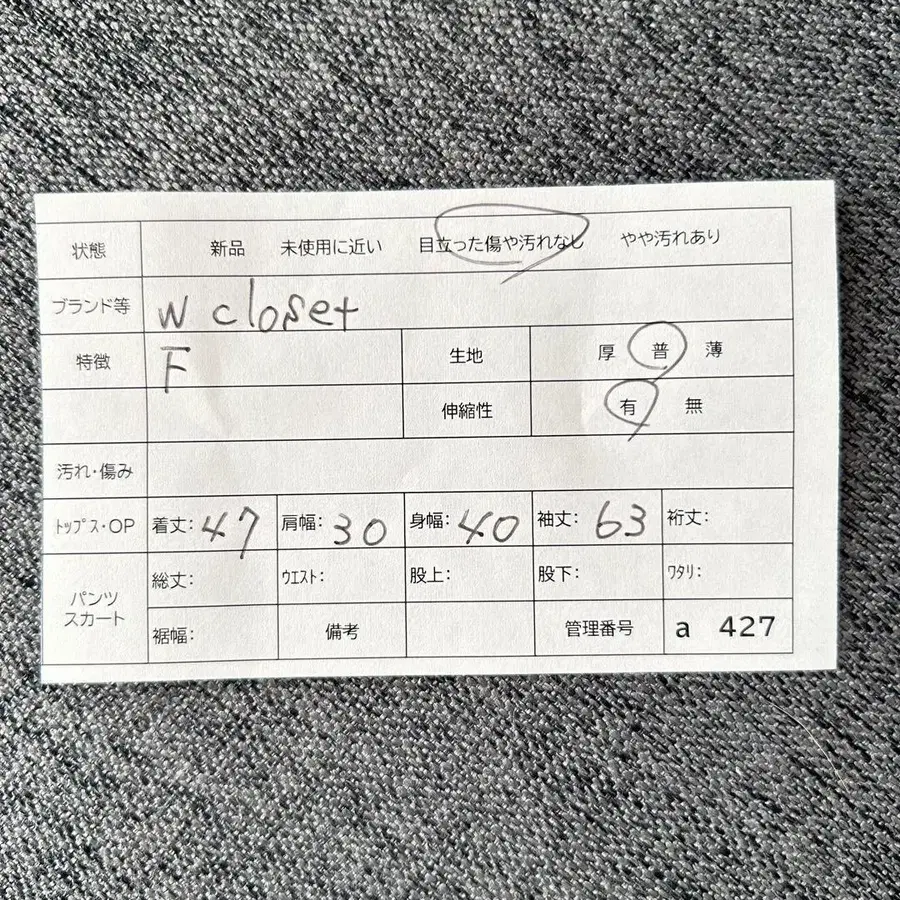 状態 新品 未使用に近い 目立った傷や汚れなし やや汚れあり
ブランド等 w closet
特徴 F 生地 厚 普 薄
伸縮性 有 無
汚れ・傷み
ﾄｯﾌﾟｽ・OP 着丈: 47 肩幅: 30 身幅: 40 袖丈: 63 裄丈:
パンツ
スカート
総丈: ｳｴｽﾄ: 股上: 股下: ﾜﾀﾘ:
裾幅: 備考 管理番号 a 427